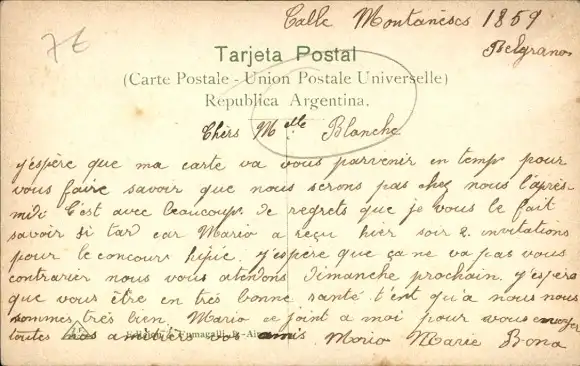 Calle Montañeses 1859
Belgrano
76
Tarjeta Postal
(Carte Postale - Union Postale Universelle)
República Argentina.
Chers Melle Blanche
y'espère que ma carte va vous parvenir en temp pour
vous faire savoir que nous serons pas chez nous l'après-
midi C'est avec beaucoup de regrets que je vous le fait
savoir si tard car Mario a reçu hier soir 2 invitations
pour le concours hipic. y'espère que ça ne va pas vous
contrarier nous vous atendons Dimanche prochain. y'espère
que vous être en très bonne santé t'ent qu'a nous nous
sommes très bien. Mario ce joint a moi pour vous envoyer
toutes nos amitiers vos amis. Mario Marie Bona
Fumagalli, B.-Aires